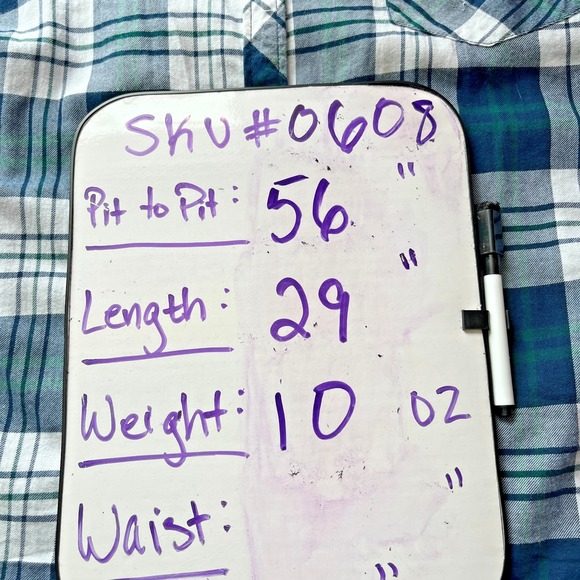 SKU #0608
Pit to Pit: 56 "
Length: 29 "
Weight: 10 oz
Waist: "
"